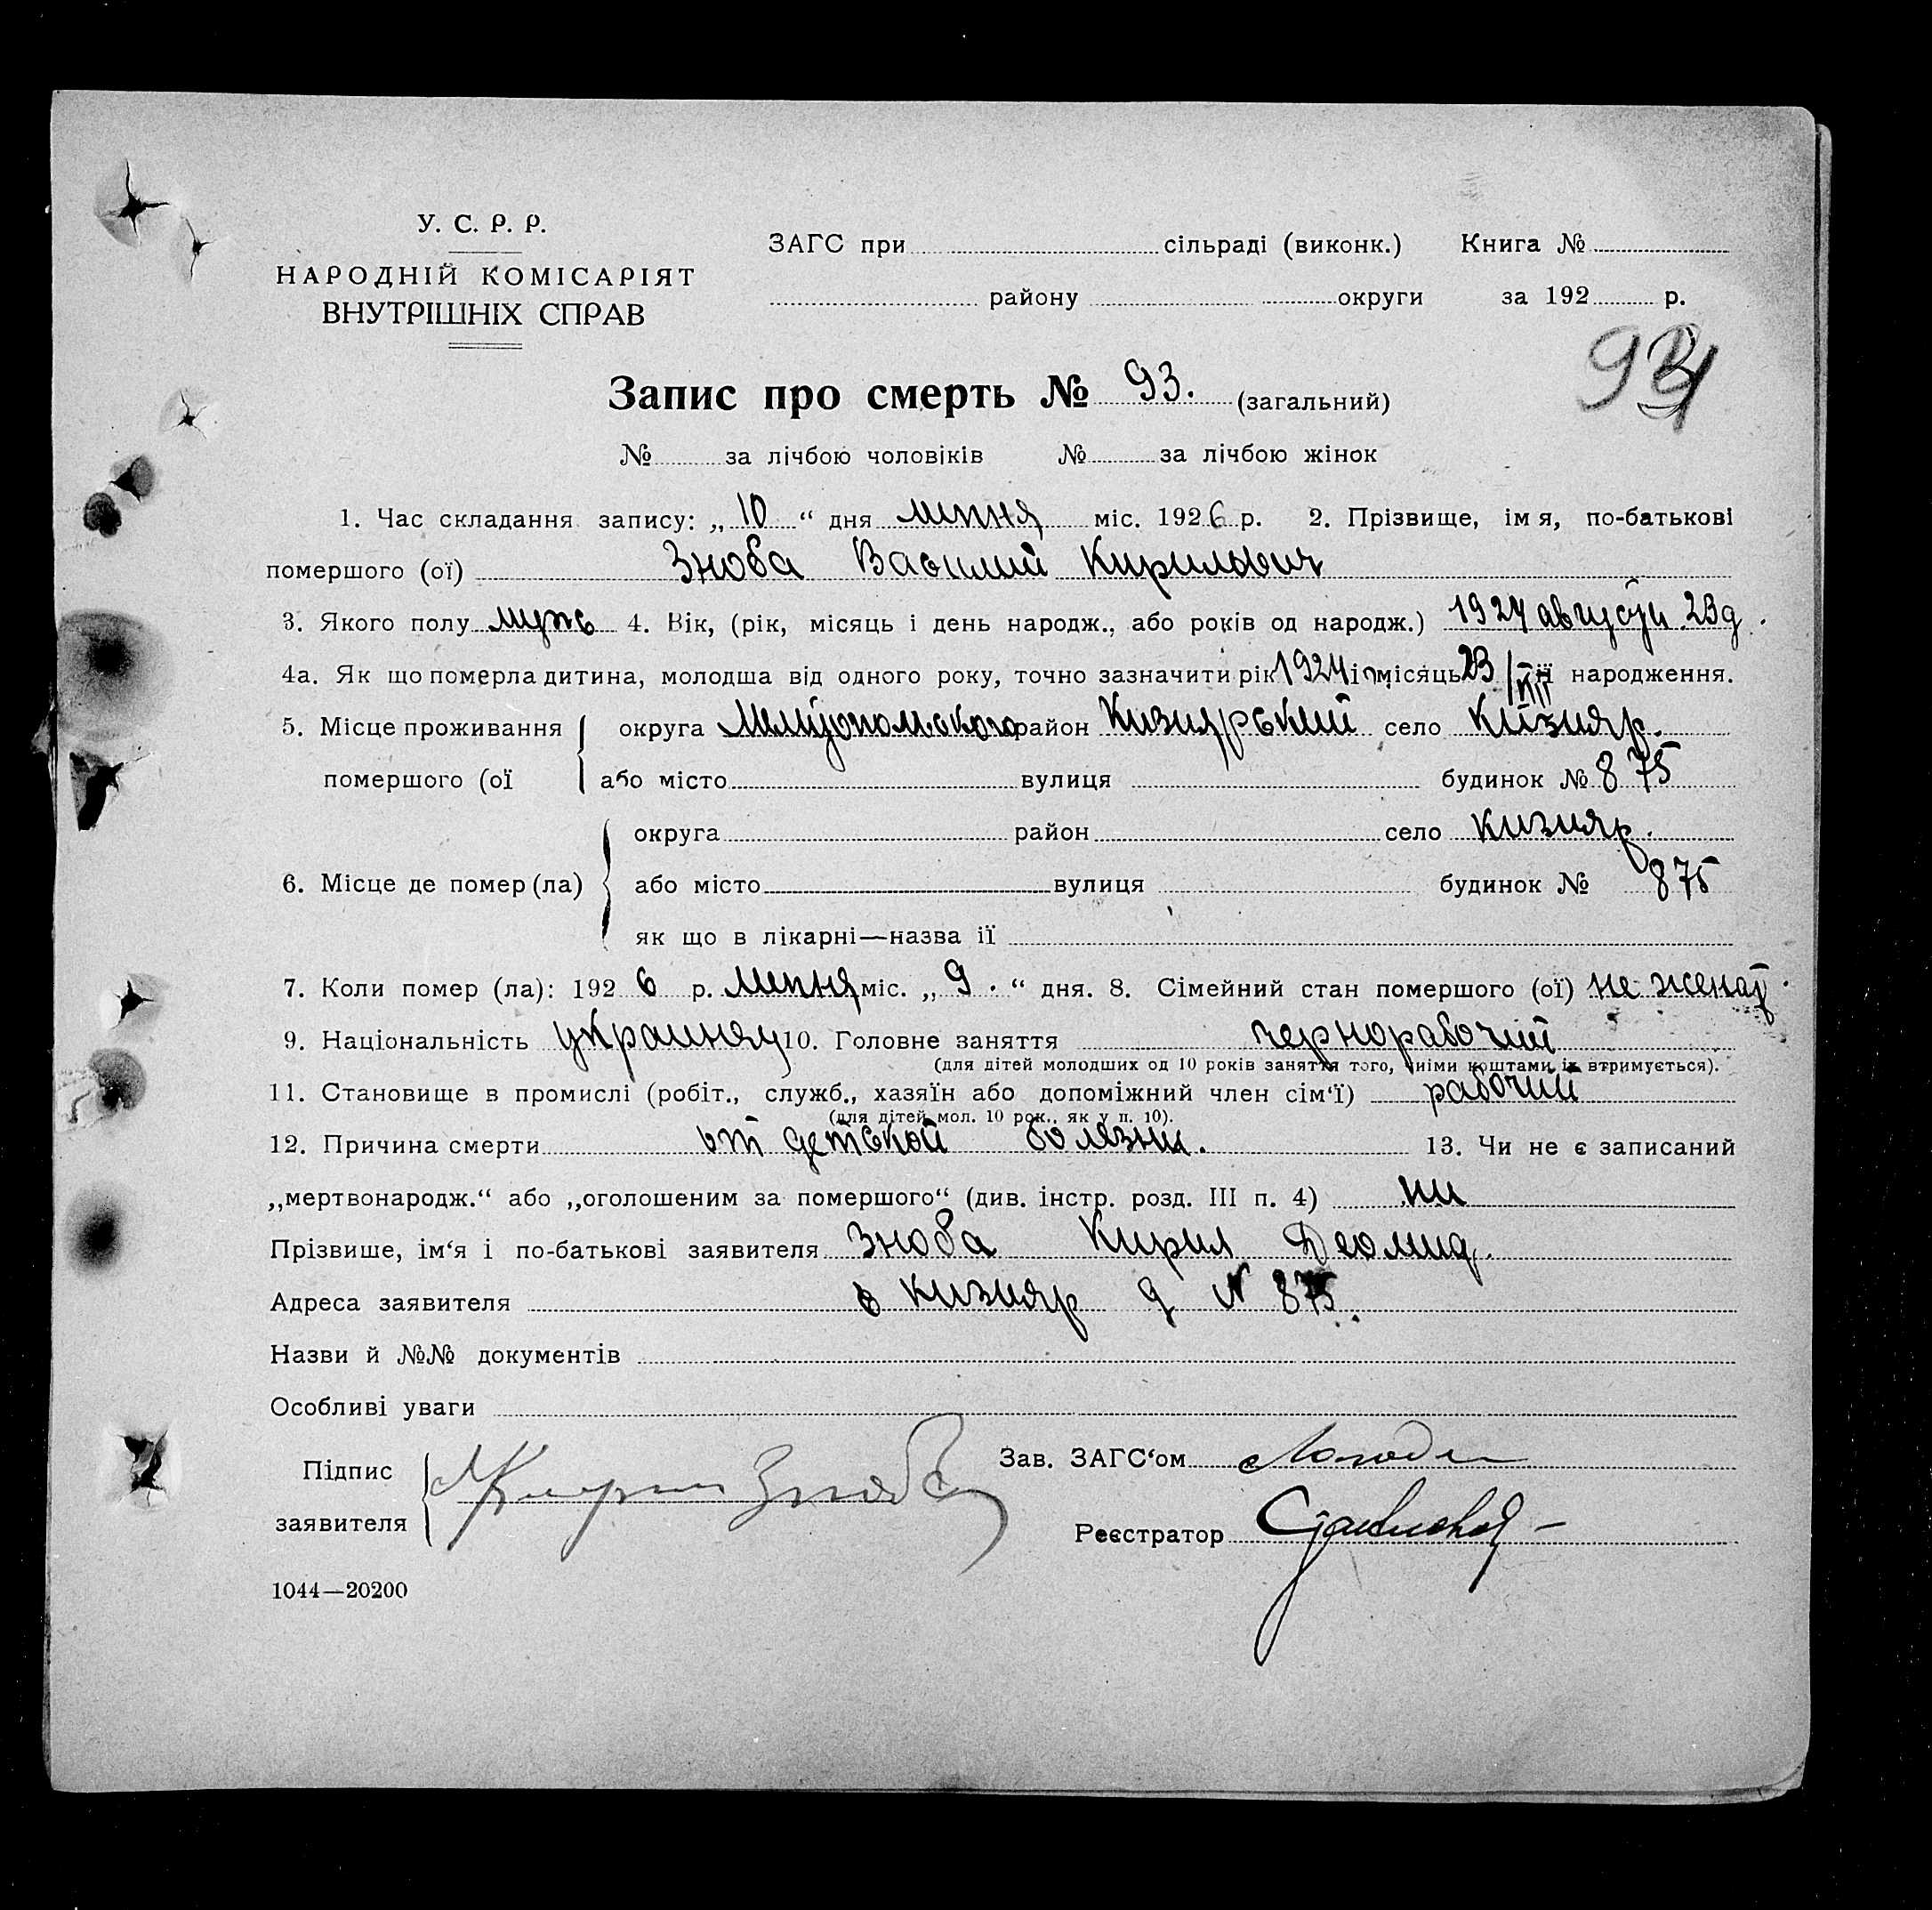 У. С. Р. Р.
НАРОДНІЙ КОМІСАРІЯТ
ВНУТРІШНІХ СПРАВ
ЗАГС при сільраді (виконк.) Книга №
району округи за 192 р.
Запис про смерть № 93. (загальний)
№ за лічбою чоловіків № за лічбою жінок
1. Час складання запису: „10“ дня липня міс. 1926 р. 2. Прізвище, ім я, по-батькові
помершого (ої) Зноба Василий Кирилович
3. Якого полу мужс 4. Вік, (рік, місяць і день народж., або років од народж.) 1924 августа 23д.
4а. Як що померла дитина, молодша від одного року, точно зазначити рік 1924 місяць 23/VIII народження.
5. Місце проживання округа Мелитопольского район Кизиярський село Кизияр.
помершого (ої або місто вулиця будинок № 875
округа район село Кизияр.
6. Місце де помер (ла) або місто вулиця будинок № 875
як що в лікарні—назва ії
7. Коли помер (ла): 1926 р. липня міс. „9.“ дня. 8. Сімейний стан помершого (ої) не женат.
9. Національність 10. Головне заняття чернорабочий
(для дітей молодших од 10 років заняття того, чиїми коштами їх втримується).
11. Становище в промислі (робіт., служб., хазяїн або допоміжний член сім‘ї) рабочий
(для дітей мол. 10 рок., як у п. 10).
12. Причина смерти от детской болязни. 13. Чи не є записаний
„мертвонародж.“ або „оголошеним за помершого“ (див. інстр. розд. III п. 4) ни
Прізвише, ім‘я і по-батькові заявителя Зноба Кирил Деомид.
Адреса заявителя в Кизияр д N 875.
Назви й №№ документів
Особливі уваги
Підпис Кирил Зноба Зав. ЗАГС‘ом
заявителя Реєстратор
1044—20200